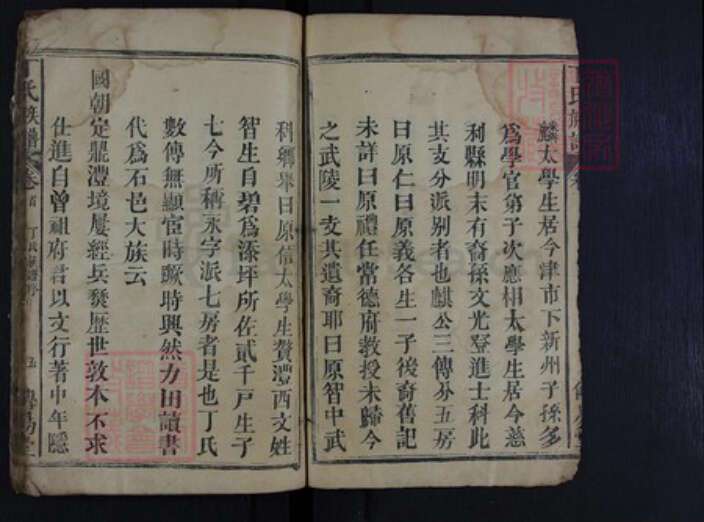 麟太學生居今津市下新州子孫多
為學官第子次應相太學生居今慈
利縣明末有裔孫文光登進士科此
其支分派别者也麒公三傳分五房
曰原仁曰原義各生一子後裔舊記
未詳曰原禮任常德府教授未歸今
之武陵一支其遺裔耶曰原智中武
科鄉舉曰原信太學生贅澧西文姓
智生自碧為添坪所佐貳千戸生子
七今所稱永字派七房者是也丁氏
數傳無顯宦時厥時興然力田讀書
代為石邑大族云
國朝定鼎澧境屢經兵燹歷世敦本不求
仕進自曾祖府君以文行著中年隱
丁氏族譜
卷首
五